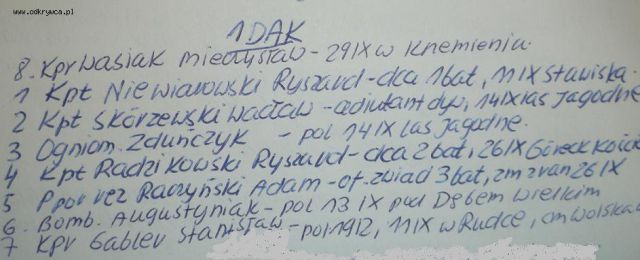 www.odkrywca.pl
1 DAK
8. Kpr Wasiak Mieczysław - 29 IX w Krzemieniu
1 Kpt Niewiarowski Ryszard - dca 1 bat, 11 IX Stawiska.
2 Kpt Skórzewski Wacław - adiutant dyw, 14 IX las Jagodne
3 Ogniom. Zduńczyk - pol 14 IX las Jagodne.
4 Kpt Radzikowski Ryszard - dca 2 bat, 26 IX Góreck Kościel
5 Ppor rez Raczyński Adam - of. zwiad 3 bat, zm z ran 26 IX
6. Bomb. Augustyniak - pol 13 IX pod Dębem Wielkim
7 Kpr Gabler Stanisław - pol 1912, 11 IX w Rudce, cm Wolska